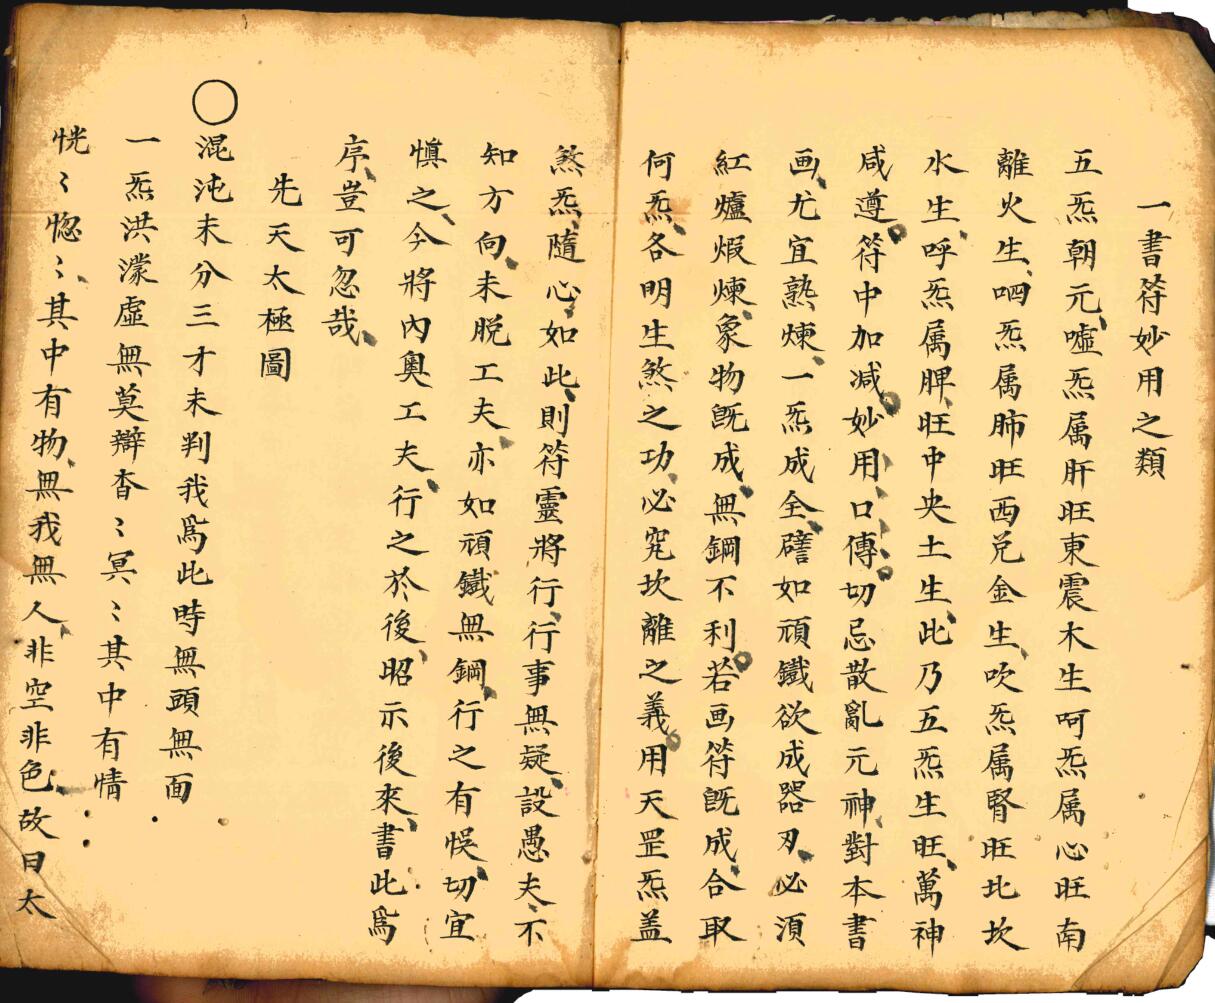 一書符妙用之類
五炁朝元噓炁属肝旺東震木生呵炁属心旺南
離火生呬炁属肺旺西兑金生吹炁属腎旺北坎
水生呼炁属脾旺中央土生此乃五炁生旺萬神
咸遵符中加减妙用口傳切忌散亂元神對本書
画尤宜熟煉一炁成全譬如頑鐵欲成器刄必湏
紅爐煆煉象物旣成無鋼不利若画符旣成合取
何炁各明生煞之功必究坎離之義用天罡炁盖
煞炁隨心如此則符靈將行行事無疑設愚夫不
知方向未脱工夫亦如頑鐵無鋼行之有悮切宜
慎之今將內奥工夫行之於後昭示後來書此爲
序豈可忽哉
先天太極圖
〇混沌未分三才未判我爲此時無頭無面
一炁洪濛虛無莫辯杳〻冥〻其中有情
恍〻惚〻其中有物無我無人非空非色故曰太